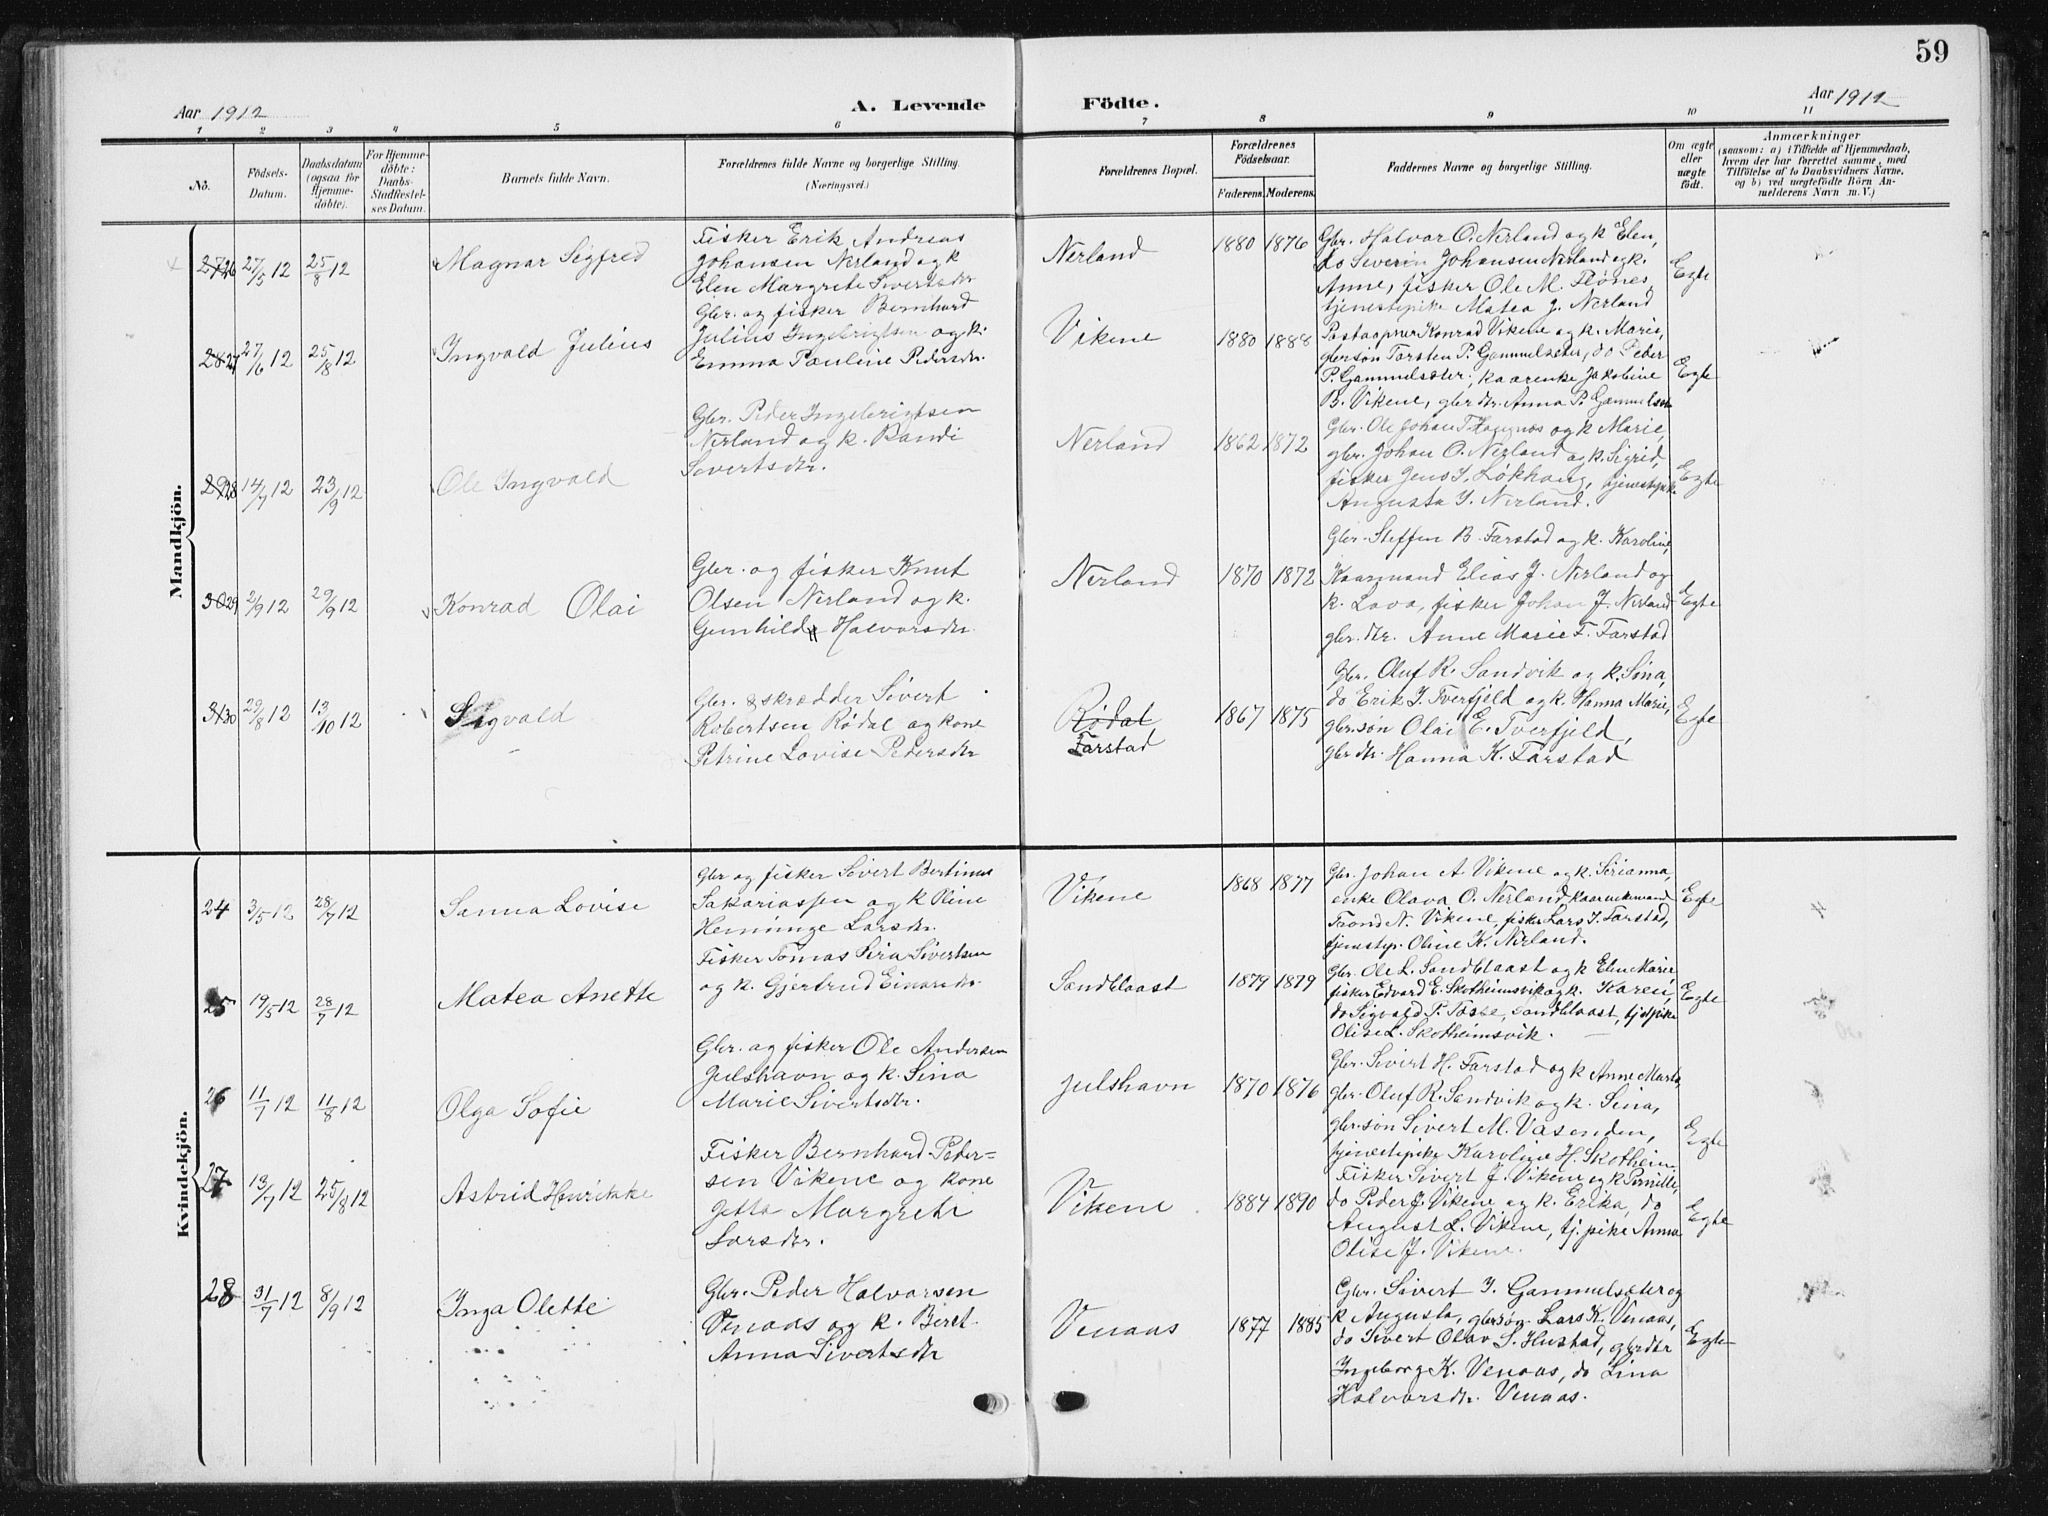 59
Aar 1912
A. Levende Födte.
Aar 1912
1 2 3 4 5 6 7 8 9 10 11
No.
Födsels-
Datum.
Daabsdatum
(ogsaa for
Hjemme-
döbte).
For Hjemme-
döbte:
Daabs-
Stadfæstel-
ses Datum.
Barnets fulde Navn.
Forældrenes fulde Navne og borgerlige Stilling.
(Næringsvei.)
Forældrenes Bopæl.
Forældrenes
Födselsaar.
Faderens. Moderens.
Faddernes Navne og borgerlige Stilling.
Om ægte
eller
uægte
födt.
Anmærkninger
(saasom: a) i Tilfælde af Hjemmedaab,
hvem der har forrettet samme, med
Tilföielse af to Daabsvidners Navne,
og b) ved uægtefödte Börn An-
melderens Navn m. V.)
Mandkjön.
27 26 27/5 12 25/8 12
Magnar Sigfred
Fisker Erik Andreas
Johansen Nerland og k
Elen Margrete Sivertsdr
Nerland
1880 1876
Gbr. Halvar O. Nerland og k Elen,
do Severin Johansen Nerland og k.
Anne, fisker Ole M. Flønes,
tjenestepike Matea J. Nerland
Egte
28 27 27/6 12 25/8 12
Ingvald Julius
Gbr. og fisker Bernhard
Julius Ingebrigtsen og k.
Emma Pauline Pedersdr.
Vikene
1880 1888
Postaapner Konrad Vikene og k. Marie,
gbrsøn Torsten P. Gammelseter, do Peder
P. Gammelseter, kaarenke Jakobine
B. Vikene, gbrdtr. Anna P. Gammelseter
Egte
29 28 14/7 12 23/9 12
Ole Ingvald
Gbr. Peder Ingebrigtsen
Nerland og k. Randi
Sivertsdtr.
Nerland
1862 1872
Gbr. Ole Johan T. og k Marie,
gbr. Johan O. Nerland og k. Sigrid,
fisker Jens S. Løkhaug, tjenestepike
Augusta I. Nerland.
Egte
30 29 2/9 12 29/9 12
Konrad Olai
Gbr. og fisker Knut
Olsen Nerland og k.
Gunhild Halvorsdtr.
Nerland
1870 1872
Gbr. Steffen B. Farstad og k. Karoline,
Kaarmand Elias J. Nerland og
k. Lava, fisker Johan J. Nerland
gbr. dtr. Anne Marie F. Farstad
Egte
31 30 29/8 12 13/10 12
Sigvald
Gbr. & skrædder Sivert
Robertsen Rødal og kone
Petrine Lovise Pedersdtr
Rødal
Farstad
1867 1875
Gbr. Oluf R. Sandvik og k. Sina,
do Erik I. Tverfjeld og k. Hanna Marie,
gbrsøn Olai E. Tverfjeld,
gbrdtr. Hanna K. Farstad
Egte
Kvindekjön.
24 3/5 12 28/7 12
Sanna Lovise
Gbr og fisker Sivert Bertinus
Sakariassen og k Pleine
Henninge Larsdtr.
Vikene
1868 1877
Gbr. Johan A. Vikene og k. Serianna,
enke Olava O. Nerland, kaarenkemand
Trond N. Vikene, fisker Lars I. Farstad,
tjenestep. Oline K. Nerland.
Egte
25 19/5 12 28/7 12
Matea Anette
Fisker Tomas Sira Sivertsen
og k. Gjertrud Einarsdr.
Sandblaast
1879 1879
Gbr. Ole L. Sandblaast og k Elen Marie,
fisker Edvard E. Skotheimsvik og k. Karen,
do Sigvald P. Tasse, Sandblaast, tj.pike
Olise L. Skotheimsvik.
Egte
26 11/7 12 11/8 12
Olga Sofie
Gbr. og fisker Ole Andersen
Julshavn og k. Sina
Marie Sivertsdtr.
Julshavn
1870 1876
Gbr. Sivert H. Farstad og k Anne Marta
gbr. Oluf R. Sandvik og k. Sina,
gbrsøn Sivert M. Vasenden,
tjenestepike Karoline H. Skotheim
Egte
27 13/7 12 25/8 12
Astrid Henrikke
Fisker Bernhard Peder=
sen Vikene og kone
Jetta Margrete
Larsdtr.
Vikene
1884 1890
Fisker Sivert J. Vikene og k Pernille,
do Peder J. Vikene og k. Erika, do
August L. Vikene, tj. pike Anna
Olise J. Vikene.
Egte
28 31/7 12 8/9 12
Inga Olette
Gbr. Peder Halvorsen
Venaas og k. Beret
Anna Sivertsdtr
Venaas
1877 1885
Gbr. Sivert I. Gammelseter og
k Augusta, gbrsøn Lars K. Venaas,
do Sivert Olav S. Hustad, gbrdtr
Ingeborg K. Venaas, do Lina
Halvorsdtr. Venaas.
Egte